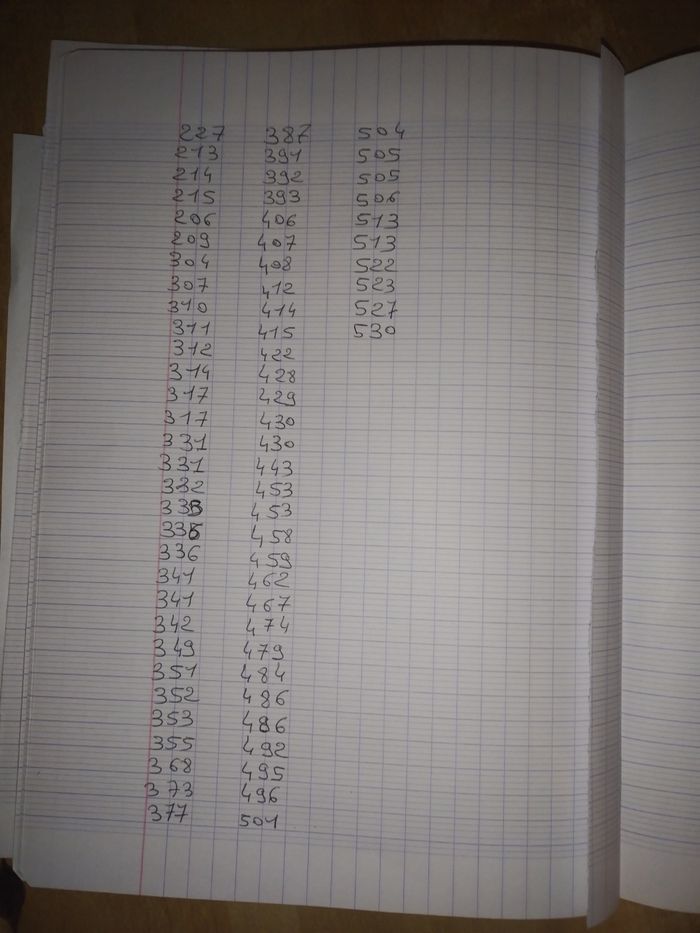 227 387 504
213 391 505
214 392 505
215 393 506
206 406 513
209 407 513
304 408 522
307 412 523
310 414 527
311 415 530
312 422
314 428
317 429
317 430
331 430
331 443
332 453
333 453
335 458
336 459
341 462
341 467
342 474
349 479
351 484
352 486
353 486
355 492
368 495
373 496
377 501